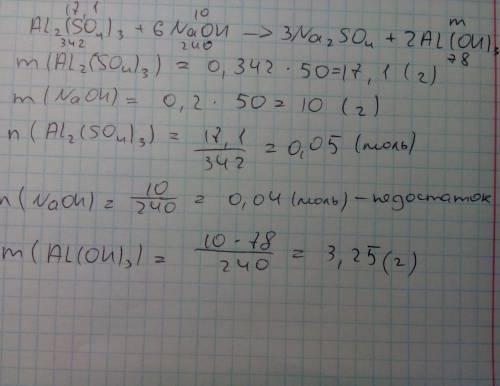 17,1 10 m
Al₂(SO₄)₃ + 6 NaOH → 3Na₂SO₄ + 2Al(OH)₃
342 240 78
m(Al₂(SO₄)₃) = 0,342 · 50 = 17,1 (г)
m(NaOH) = 0,2 · 50 = 10 (г)
n(Al₂(SO₄)₃) = 17,1/342 = 0,05 (моль)
n(NaOH) = 10/240 = 0,04 (моль) – недостаток
m(Al(OH)₃) = 10 · 78/240 = 3,25 (г)